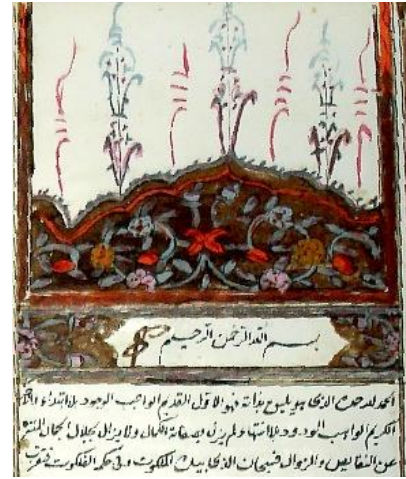 بسم الله الرحمن الرحيم
الحمد لله حمد الذي هو يليق بذاته فهو الاول القديم الواجب الوجود بلا ابتداء
الكريم الواهب الودود بلا انتهاء ولم يزل بصفات الكمال ولا يزال بجلال الجمال المنزه
عن النقايص والزوال فسبحان الذي بيده الملكوت وفي حكم